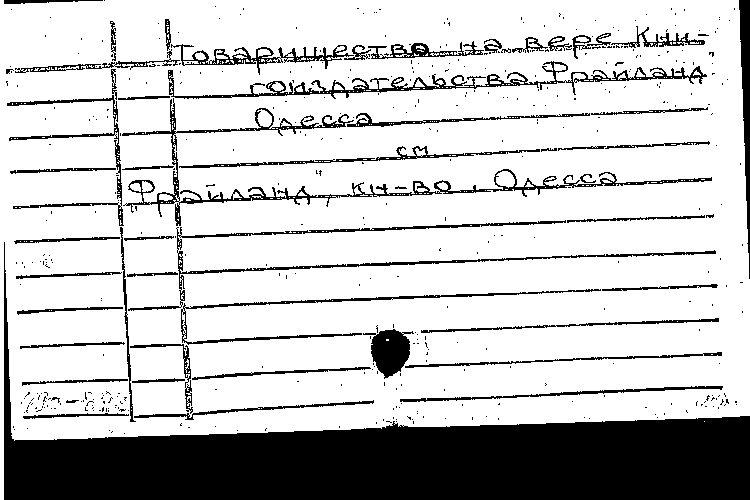 Товарищество на вере Кни-
гоиздательства „Фрайланд"
Одесса
см
„Фрайланд", кн-во. Одесса